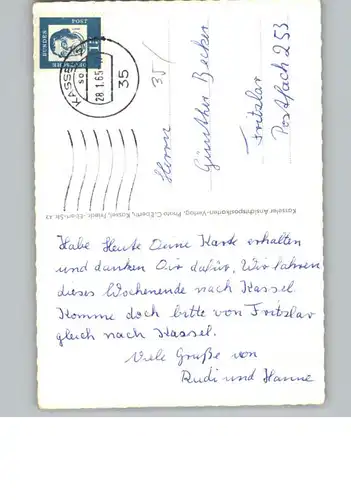 DEUTSCHE
BUNDES
POST
15
KASSEL
28.1.65
35
35/
Herrn
Günther Becker
Fritzlar
Postfach 253
Kasseler Ansichtspostkarten-Verlag, Photo C.Eberth, Kassel, Friedr.-Ebert-Str.
Habe Heute Deine Karte erhalten
und danken Dir dafür, Wir fahren
dieses Wochenende nach Kassel
Komme doch bitte von Fritzlar
gleich nach Kassel.
Viele Grüße von
Rudi und Hanne